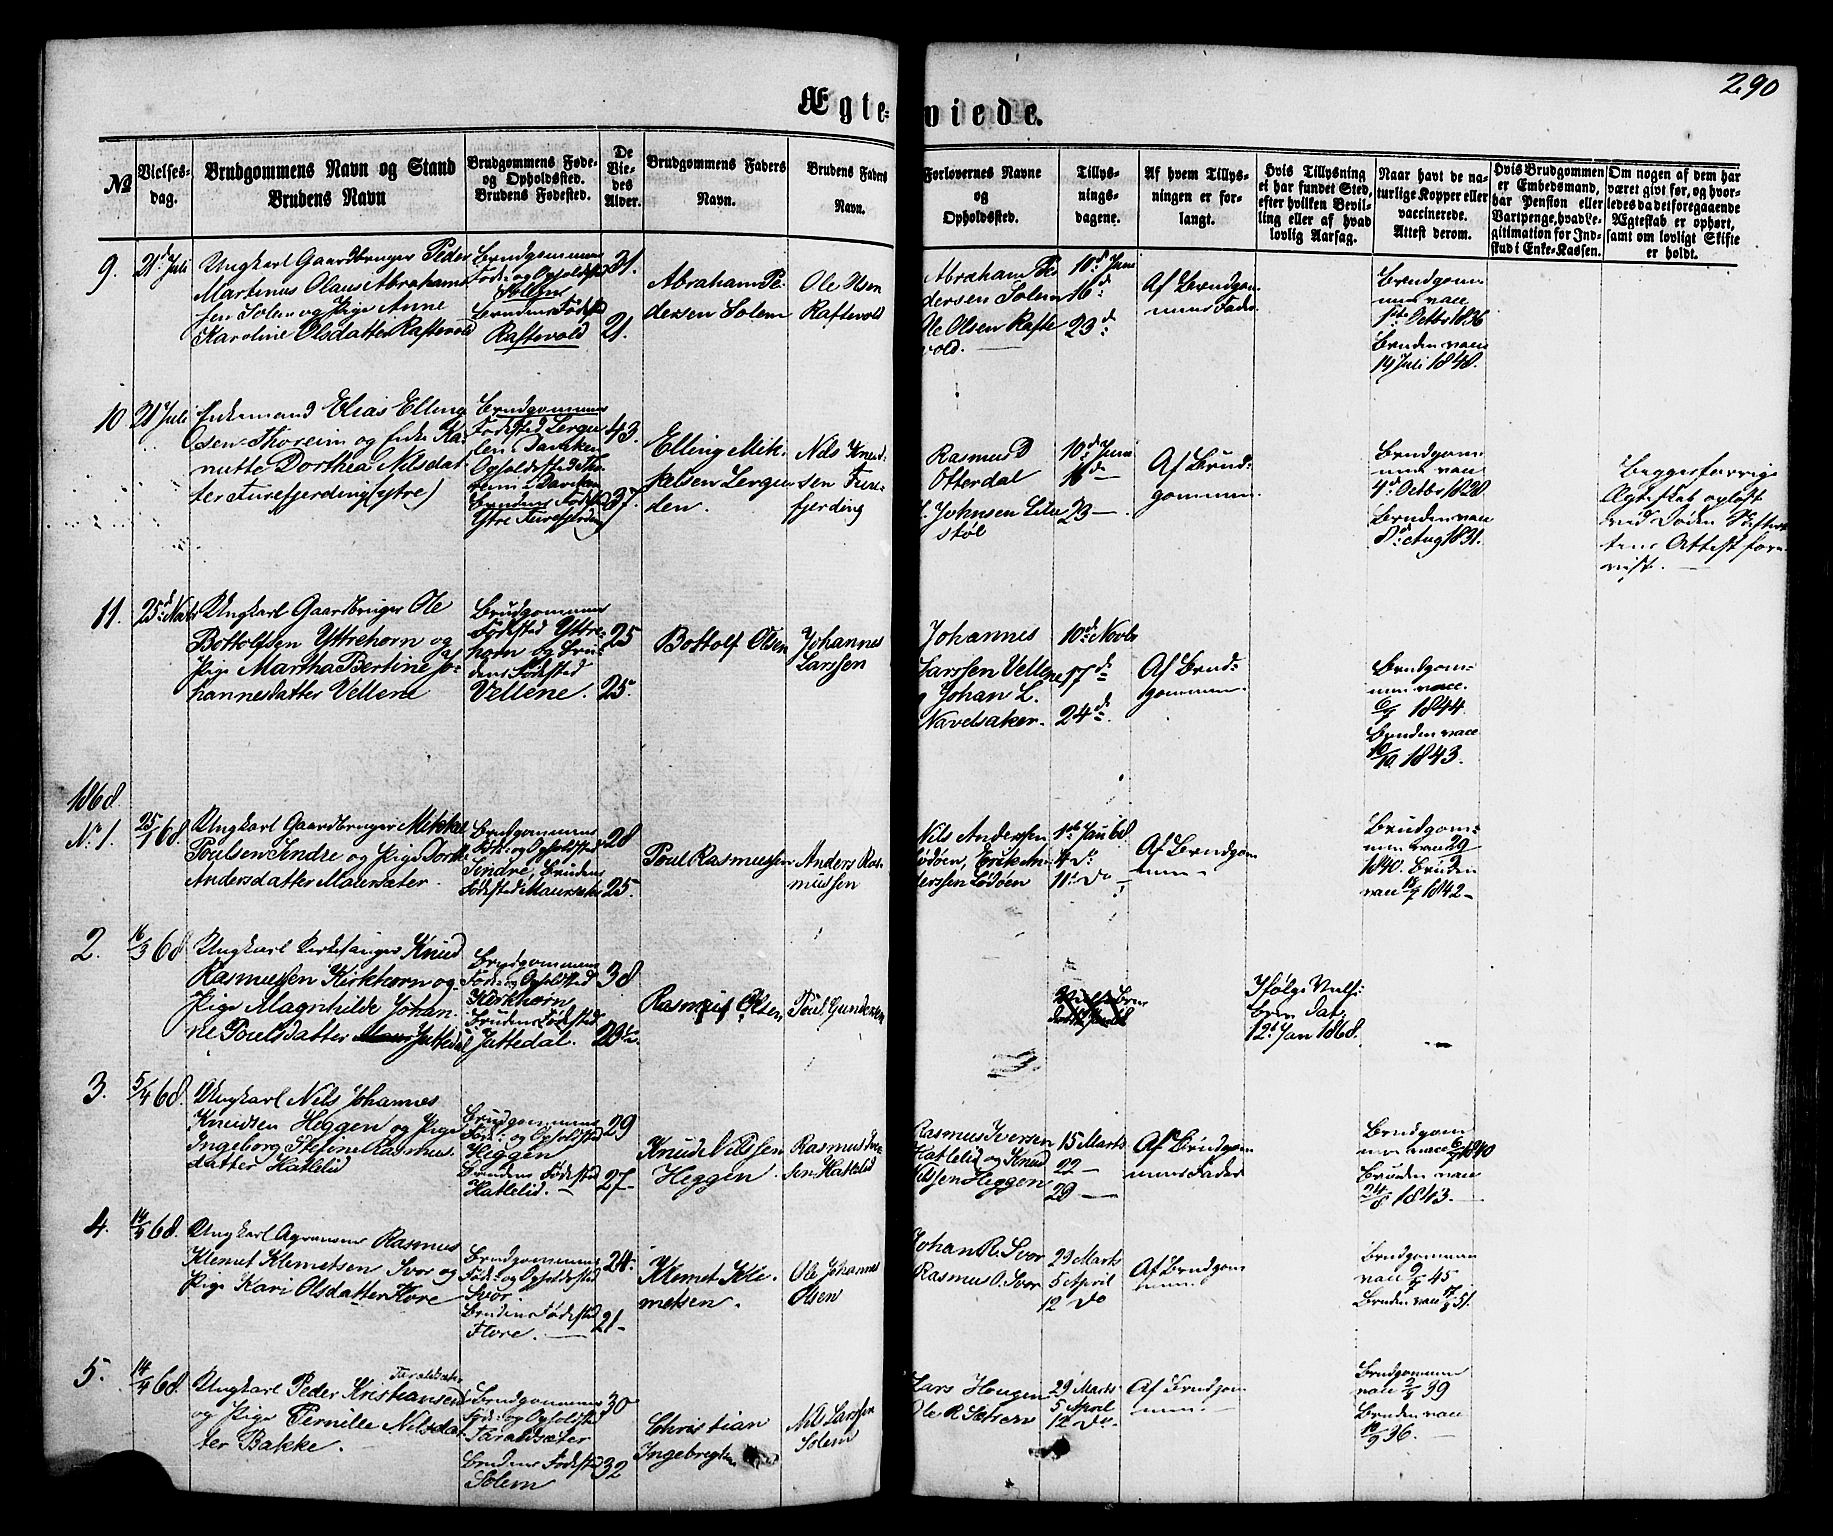 290
Ægteviede.
№
Vielses-
dag.
Brudgommens Navn og Stand
Brudens Navn
Brudgommens Føde-
og Opholdssted.
Brudens Fødested.
De
Vie-
des
Alder.
Brudgommens Faders
Navn.
Brudens Faders
Navn.
Forlovernes Navne
og
Opholdssted.
Tillys-
nings-
dagene.
Af hvem Tillys-
ningen er for-
langt.
Hvis Tillysning
ei har fundet Sted,
efter hvilken Bevil-
ling eller af hvad
lovlig Aarsag.
Naar havt de na-
turlige Kopper eller
vaccinerede.
Attest derom.
Hvis Brudgommen
er Embedsmand,
har Pension eller
Vartpenge, hvad Le-
gitimation for Ind-
skud i Enke-Kassen.
Om nogen af dem har
været gift før, og hvor-
ledes da det foregaaende
Ægteskab er ophørt,
samt om lovligt Skifte
er holdt.
9.
21d Juli
Ungkarl Gaardbruger Peder
Martinus Olaus Abrahams
sen Solem og Pige Anne
Karoline Olsdatter Raftevold
Brudgommens
Føde- og Opholdssted
Solem
Brudens Fødested
Raftevold
31.
21.
Abraham Pe-
dersen Solem
Ole Olsen
Raftevold
Abraham Pe-
dersen Solem
Ole Olsen Rafte
vold.
10d Juni
16d
23d
Af Brudgom
mens Fader
Brudgom-
men vacc
1ste Octbr 1836
Bruden vacc
14 Juli 1848.
10
21 Juli
Enkemand Elias Elling
sen Thoreim og Enke Ka-
nutte Dorthea Nilsdat
ter Furefjerding (ytre)
Brudgommens
Fødested Lergu
len i Daviken
Opholdssted Tho
reim i Daviken
Brudens Fødested
Ytre Furefjerding
43.
37.
Elling Mik-
kelsen Lergu-
len.
Nils Knud-
sen Fure-
fjerding
Rasmus D
Otterdal
J. Johnsen Lilie
støl
10d Juni
16 —
23 —
Af Brud-
gommen
Brudgom-
men vacc
4d Octbr 1828
Bruden vacc
8d Aug 1831.
Begges forrige
Ægteskab opløst
ved Døden Skifteret
tens Attest fore
vist.
11.
25d
Ungkarl Gaardbruger Ole
Bottolfsen Yttrehorn og
Pige Martha Bertine Jo-
hannesdatter Vellene
Brudgommens
Fødested Yttre-
horn og Bru-
dens Fødested
Vellene.
25
25.
Bottolf Olsen
Johannes
Larssen
Johannes
Larssen Vellene
og Johan L.
Navelsaker.
10d Novbr
17d
24d
Af Brud-
gommen.
Brudgom-
men vacc.
6/9 1844.
Bruden vacc
10/10 1843.
1868.
No 1.
25/1 68.
Ungkarl Gaardbruger Mikkel
Poulsen Sindre og Pige Dorthe
Andersdatter Maursæter.
Brudgommens
Føde- og Opholdssted
Sindre, Brudens
Fødested Maursæter
28
25.
Poul Rasmussen
Anders Ras-
mussen
Nils Anderssen
Lødøen, Erik An
derssen Lødøen
1ste Jan 68.
4 do
11 do
Af Brudgom
men
Brudgom-
men vacc 29/
1840. Bruden
vacc 1842 -
2.
16/3 68
Ungkarl Kirkesanger Knud
Rasmussen Kirkhorn og
Pige Magnhilde Johan
ne Poulsdatter Jattedal
Brudgommens
Føde- og Opholdssted
Kirkhorn
Brudens Fødested
Jattedal.
38
23
Rasmus Olsen
Poul Gundersen
Ifølge Vielse
brev dat-
12d Jan 1868.
3.
5/4 68.
Ungkarl Nils Johannes
Knudsen Heggen og Pige
Ingeborg Stefine Rasmus
datter Hatlelid
Brudgommens
Føde- og Opholdssted
Heggen
Brudens Fødested
Hatlelid. -
29
27-
Knud Nilssen
Heggen.
Rasmus Iver-
sen Hatlelid
Rasmus Iversen
Hatlelid og Knud
Nilssen Heggen
15 Marts
22 —
29 —
Af Brudgom
mens Fader
Brudgom
men vacc 1840
Bruden vacc
24/8 1843. -
4.
14/4 68.
Ungkarl Agronom Rasmus
Klemet Klemetsen Svor og
Pige Kari Olsdatter Flore
Brudgommens
Føde- og Opholdssted
Svor
Brudens Fødested
Flore.
24-
21-
Klemet Kle-
metsen.
Ole Johannes
Olsen
Johan R. Svor
Rasmus O. Svor
29 Marts
5 April
12 Do
Af Brudgom
men
Brudgommen
vacc 45
Bruden vacc 51.
5.
14/4 68.
Taraldsæter
Ungkarl Peder Kristiansen
og Pige Pernille Nilsdat
ter Bakke.
Brudgommens
Føde- og Opholdssted
Taraldsæter
Brudens Fødested
Solem
30
32
Christian
Ingebrigtsen
Nils Larssen
Solem
Lars Haugen
Ole R. Sætren
29 Marts
5 April
12 Do
Af Brudgom
men -
Brudgommen
vacc 39
Bruden vacc
36.